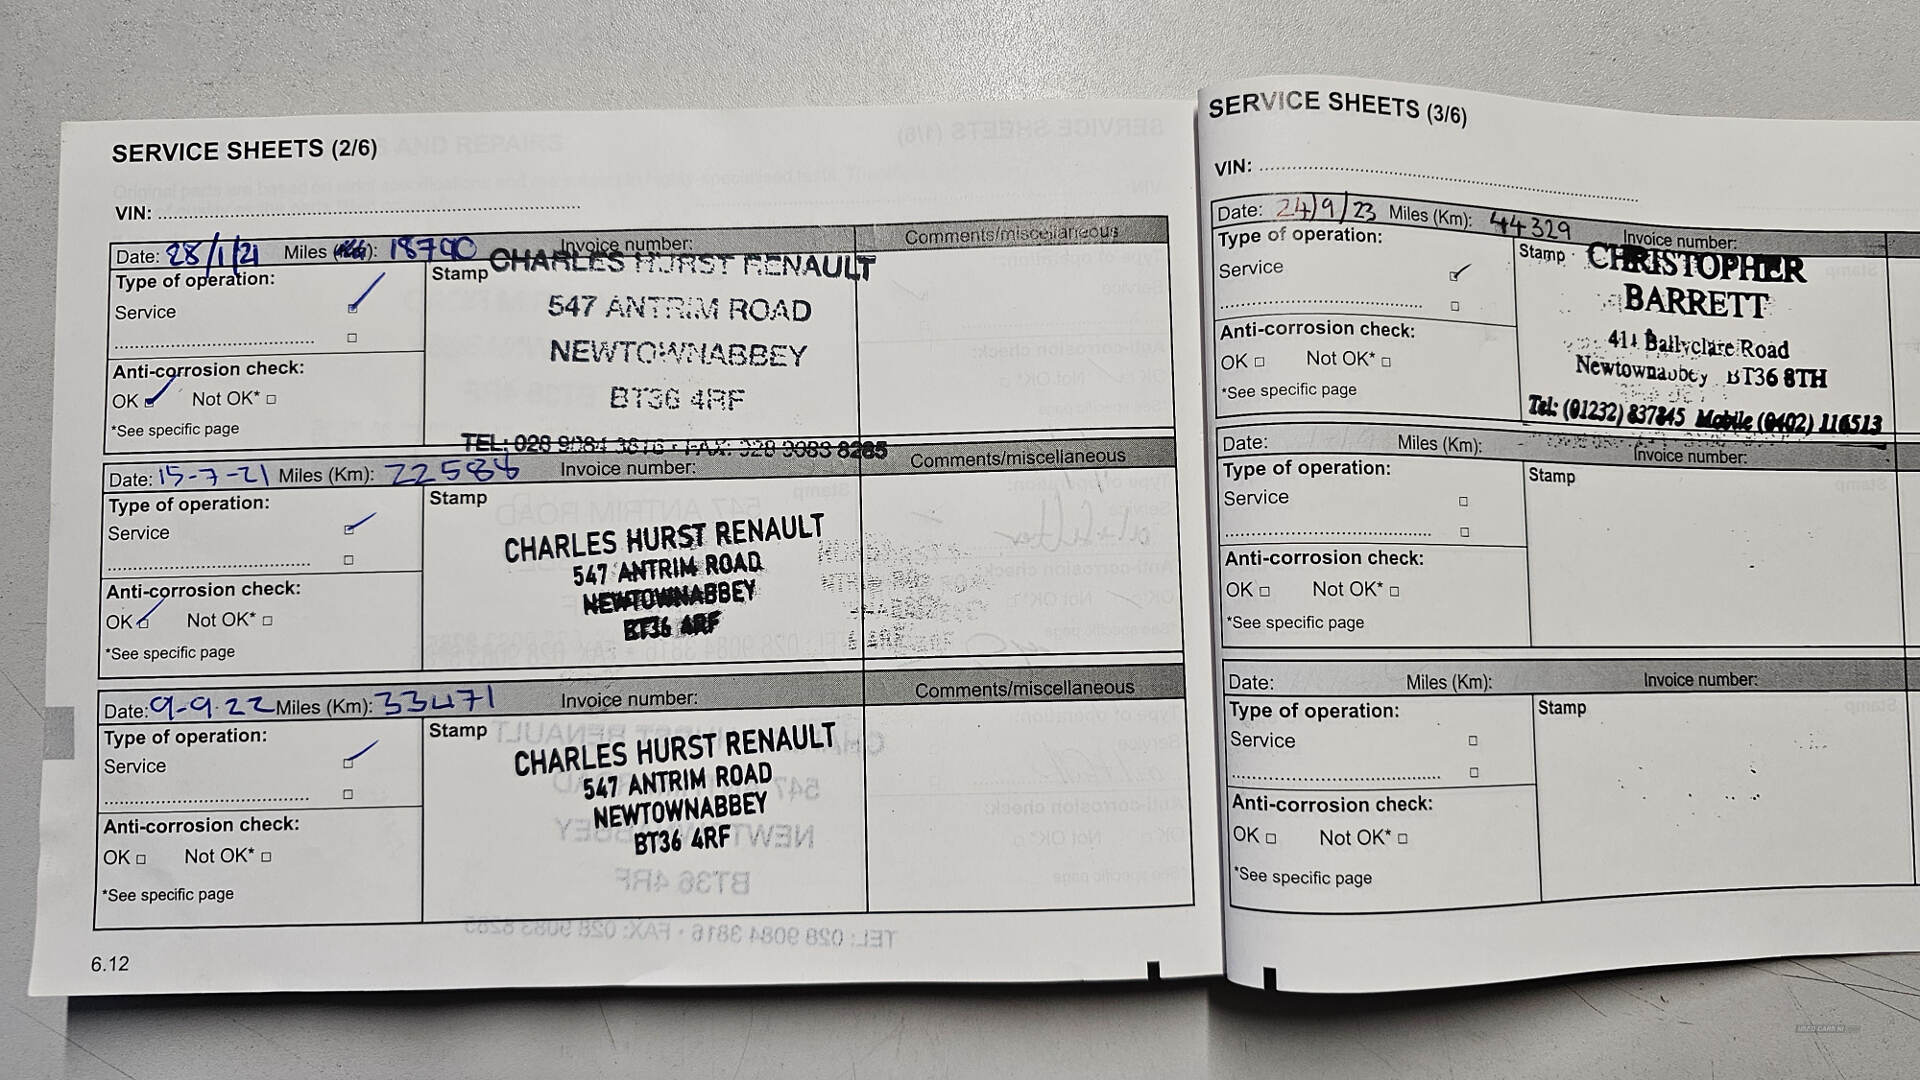 SERVICE SHEETS (2/6)
VIN:
Date: 28/1/21 Miles (Km): 18790 Invoice number: Comments/miscellaneous
Type of operation:
Service
Anti-corrosion check:
OK Not OK*
*See specific page
Stamp CHARLES HURST RENAULT
547 ANTRIM ROAD
NEWTOWNABBEY
BT36 4RF
TEL: 028 9084 3816 · FAX: 028 9083 8285
Date: 15-7-21 Miles (Km): 22588 Invoice number: Comments/miscellaneous
Type of operation:
Service
Anti-corrosion check:
OK Not OK*
*See specific page
Stamp
CHARLES HURST RENAULT
547 ANTRIM ROAD
NEWTOWNABBEY
BT36 4RF
Date: 9-9-22 Miles (Km): 33471 Invoice number: Comments/miscellaneous
Type of operation:
Service
Anti-corrosion check:
OK Not OK*
*See specific page
Stamp
CHARLES HURST RENAULT
547 ANTRIM ROAD
NEWTOWNABBEY
BT36 4RF
6.12
SERVICE SHEETS (3/6)
VIN:
Date: 24/9/23 Miles (Km): 44329 Invoice number:
Type of operation:
Service
Anti-corrosion check:
OK Not OK*
*See specific page
Stamp CHRISTOPHER
BARRETT
411 Ballyclare Road
Newtownabbey BT36 8TH
Tel: (01232) 837845 Mobile (0402) 116513
Date: Miles (Km): Invoice number:
Type of operation:
Service
Anti-corrosion check:
OK Not OK*
*See specific page
Stamp
Date: Miles (Km): Invoice number:
Type of operation:
Service
Anti-corrosion check:
OK Not OK*
*See specific page
Stamp
USED CARS NI